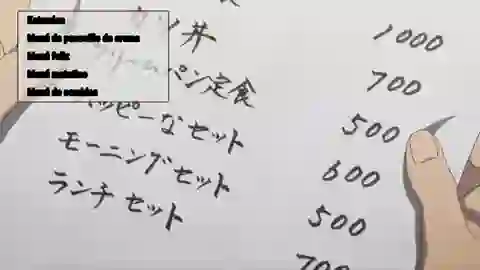 Katsudon
Menú de panecillo de crema
Menú feliz
Menú matutino
Menú de comidas
1000
カツ丼 700
クリームパン定食 500
ハッピーなセット 600
モーニングセット 500
ランチセット 700